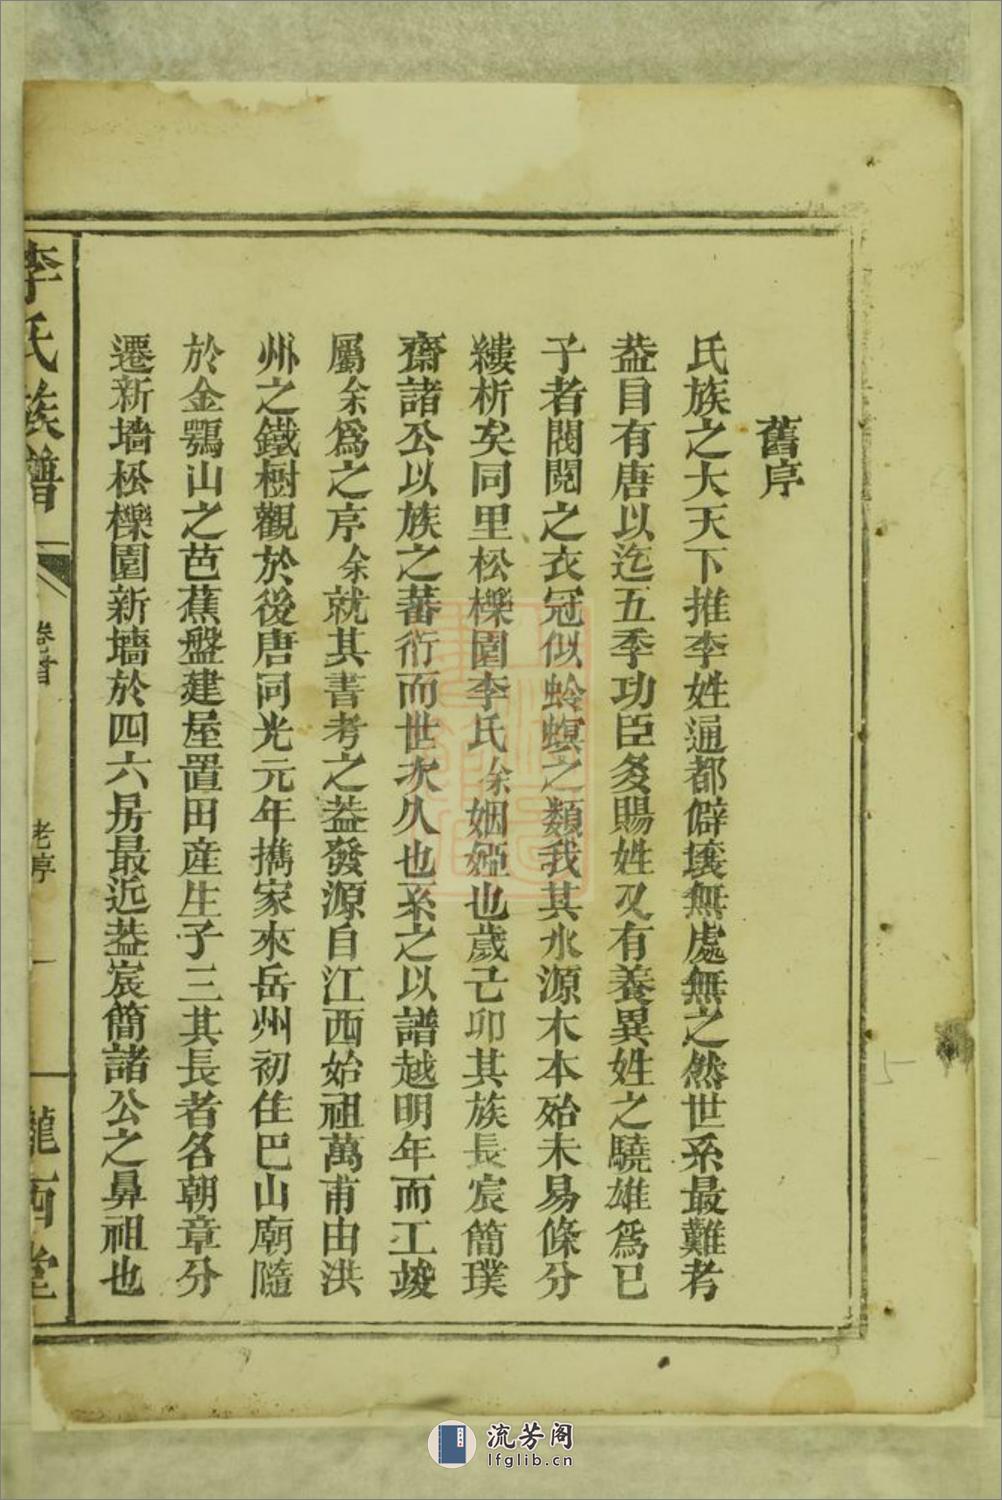 舊序
氏族之大天下推李姓通都僻壤無處無之然世系最難考
葢目有唐以迄五季功臣多賜姓又有養異姓之驍雄爲已
子者閥閱之衣冠似蛉螟之類我其水源木本殆未易條分
縷析矣同里松櫟園李氏余姻婭也歲己卯其族長宸簡璞
齋諸公以族之蕃衍而世次久也系之以譜越明年而工竣
屬余爲之序余就其書考之葢發源自江西始祖萬甫由洪
州之鐵樹觀於後唐同光元年攜家來岳州初住巴山廟隨
於金鶚山之芭蕉盤建屋置田産生子三其長者名朝章分
遷新墻松櫟園新墻於四六房最近葢宸簡諸公之鼻祖也
李氏族譜 卷首 老序 一 隴西堂
流芳阁
lfglib.cn